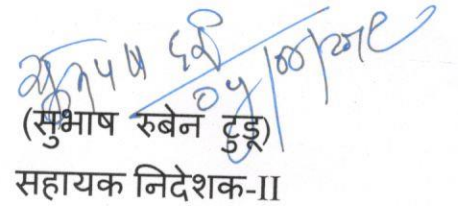 (सुभाष रुबेन टुडू)
सहायक निदेशक-II